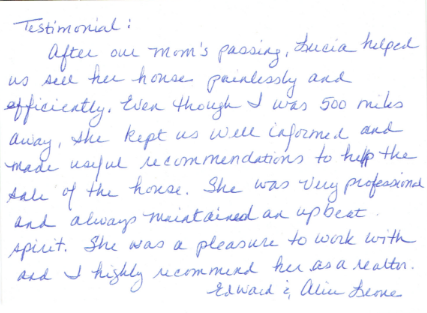 Testimonial:
After our Mom's passing, Lucia helped
us sell her house painlessly and
efficiently. Even though I was 500 miles
away, she kept us well informed and
made useful recommendations to help the
sale of the house. She was very professional
and always maintained an upbeat
spirit. She was a pleasure to work with
and I highly recommend her as a realtor.
Edward &